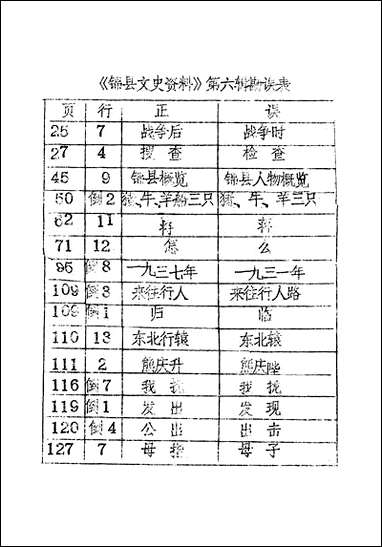 《锦县文史资料》第六辑勘误表
页 行 正 误
25 7 战争后 战争时
27 4 搜查 检查
45 9 锦县概览 锦县人物概览
50 倒2 猪、牛、羊约三只 猪、牛、羊三只
62 11
71 12 怎 么
95 倒8 一九三七年 一九三一年
109 倒3 来往行人 来往行人路
109 倒1 归 临
110 13 东北行辕 东北辕
111 2 熊庆升 熊庆陞
116 倒7 我 我
119 倒1 发出 发现
120 倒4 公出 出击
127 7 母指 母子